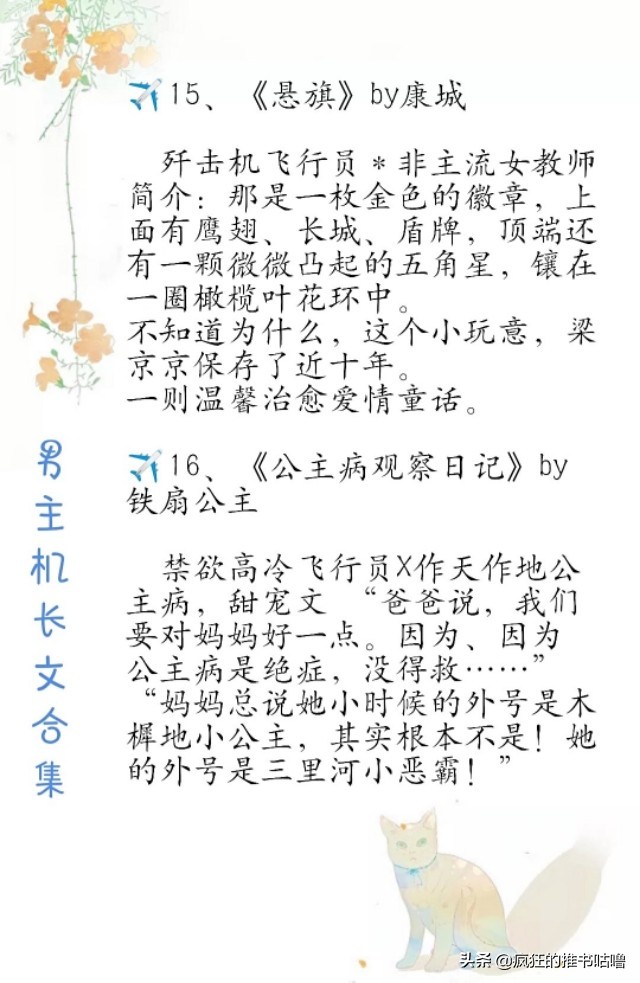 ✈️15、《悬旗》by康城
歼击机飞行员*非主流女教师
简介：那是一枚金色的徽章，上
面有鹰翅、长城、盾牌，顶端还
有一颗微微凸起的五角星，镶在
一圈橄榄叶花环中。
不知道为什么，这个小玩意，梁
京京保存了近十年。
一则温馨治愈爱情童话。
男主机长文合集
✈️16、《公主病观察日记》by
铁扇公主
禁欲高冷飞行员X作天作地公
主病，甜宠文 “爸爸说，我们
要对妈妈好一点。因为、因为
公主病是绝症，没得救……”
“妈妈总说她小时候的外号是木
樨地小公主，其实根本不是！她
的外号是三里河小恶霸！”
头条 @疯狂的推书咕噜